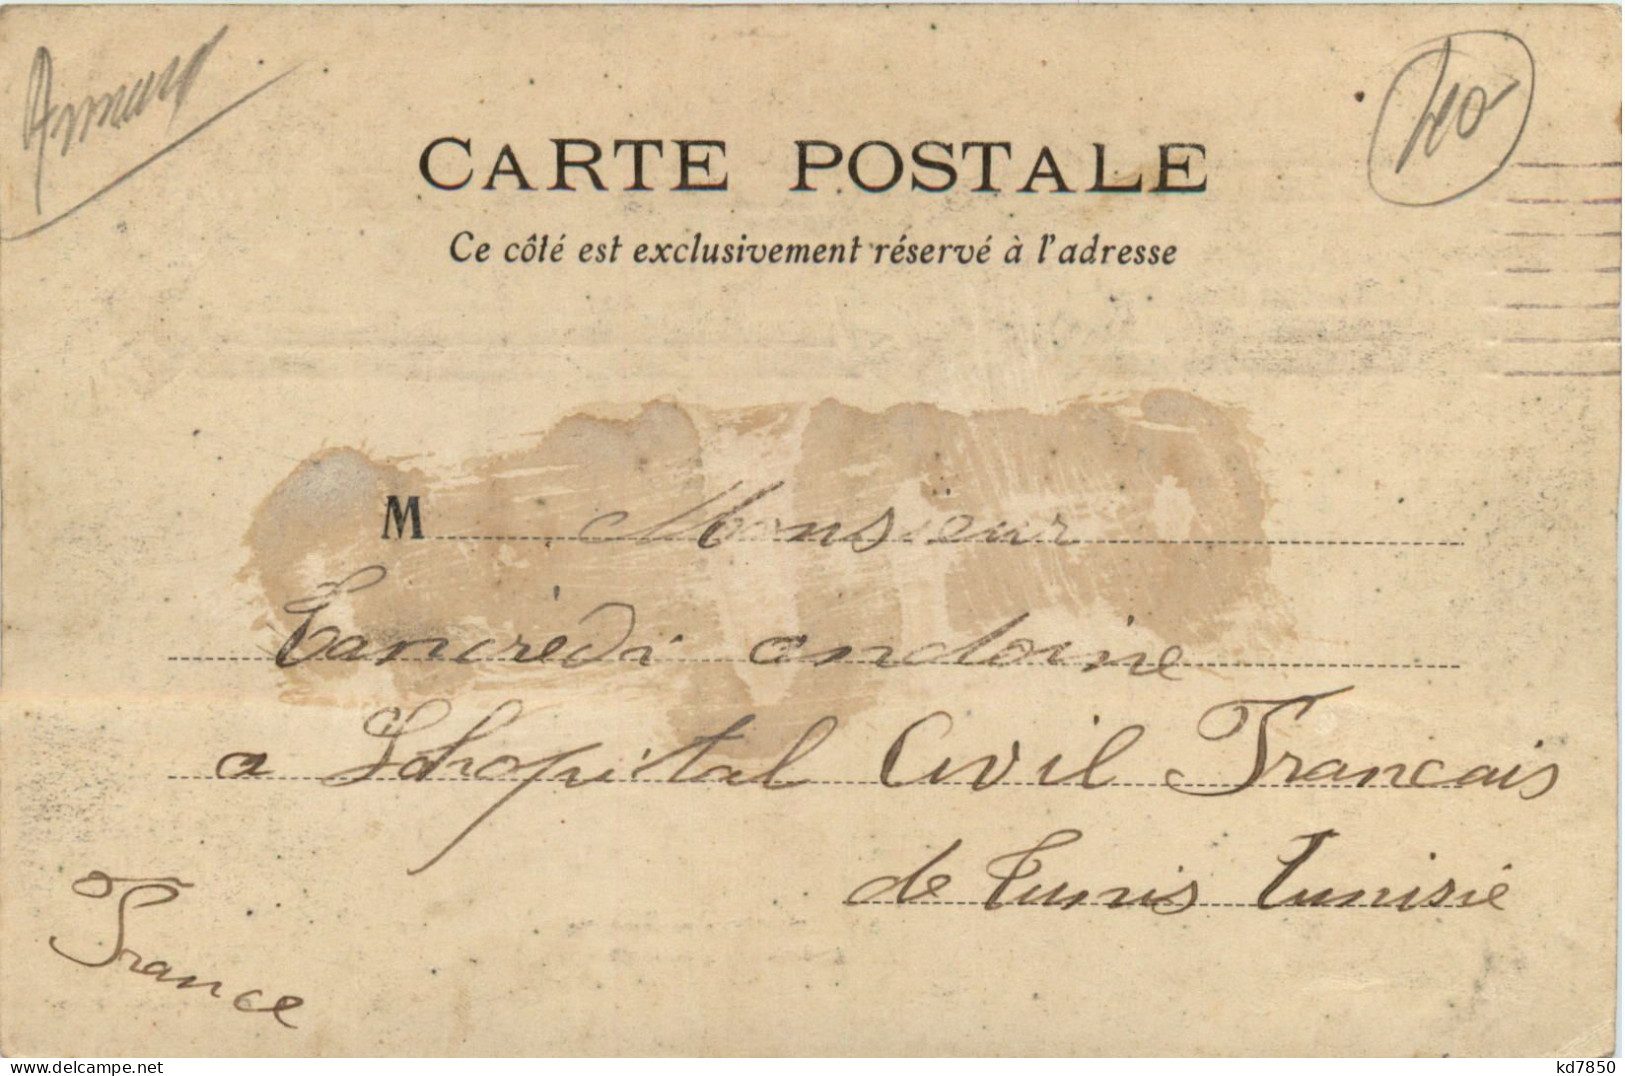 40
CARTE POSTALE
Ce côté est exclusivement réservé à l'adresse
M Monsieur
Tancrédi andoine
a Lhopital Civil Francais
de Tunis Tunisie
France
delcampe.net
kd7850